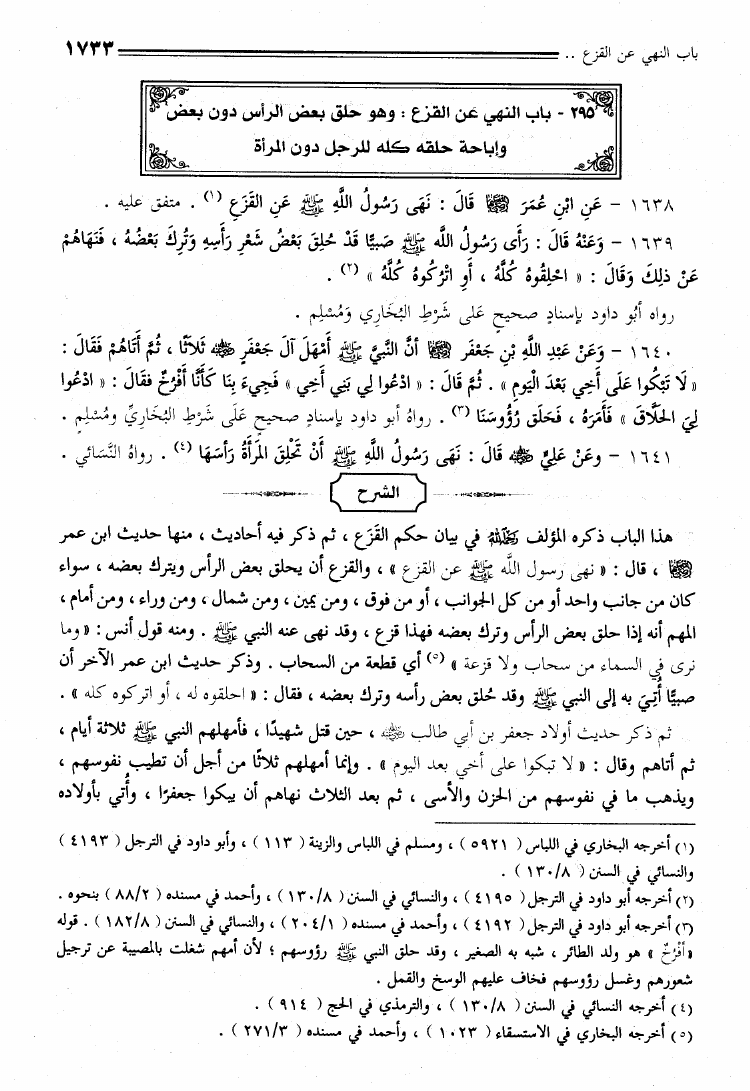 باب النهي عن القزع .. ١٧٣٣
٢٩٥ - باب النهي عن القزع : وهو حلق بعض الرأس دون بعض
وإباحة حلقه كله للرجل دون المرأة
١٦٣٨ - عَنِ ابْنِ عُمَرَ ﵄ قَالَ : نَهَى رَسُولُ اللَّهِ ﷺ عَنِ القَزَعِ (١) . متفق عليه .
١٦٣٩ - وَعَنْهُ قَالَ : رَأَى رَسُولُ اللَّه ﷺ صَبِيًّا قَدْ حُلِقَ بَعْضُ شَعْرِ رَأْسِهِ وَتُرِكَ بَعْضُهُ ، فَنَهَاهُمْ
عَنْ ذلِكَ وَقَالَ : « احْلِقُوهُ كُلَّهُ ، أَوِ اتْرُكُوهُ كُلَّهُ » (٢) .
رواه أبُو داود بإسنادٍ صحيحٍ عَلى شَرْطِ البُخَارِي وَمُسْلِم .
١٦٤٠ - وَعَنْ عَبْدِ اللَّهِ بْنِ جَعْفَرٍ ﵄ أنَّ النَّبيَّ ﷺ أَمْهَلَ آلَ جَعْفَرٍ ﵁ ثَلاثًا ، ثُمَّ أَتَاهُمْ فَقَالَ :
« لَا تَبْكُوا عَلَى أَخِي بَعْدَ الْيَوْمِ » . ثُمَّ قَالَ : « ادْعُوا لِي بَنِي أَخِي » فَجِيءَ بِنَا كَأَنَّا أَفْرُخٌ فَقَالَ : « ادْعُوا
لِيَ الحَلَّاقَ » فَأَمَرَهُ ، فَحَلَق رُؤُوسَنَا (٣) . رواهُ أبو داود بإسنادٍ صحيحٍ عَلَى شَرْطِ البُخَارِيِّ ومُسْلِمٍ .
١٦٤١ - وعَنْ عَلِيٍّ ﵁ قَالَ : نَهَى رَسُولُ اللَّهِ ﷺ أَنْ تَحْلِقَ المَرْأَةُ رَأسَهَا (٤) . رواهُ النَّسَائي .
الشرح
هذا الباب ذكره المؤلف ﵀ في بيان حكم القَزَع ، ثم ذكر فيه أحاديث ، منها حديث ابن عمر
﵄ ، قال : « نهى رسول الله ﷺ عن القزع » ، والقزع أن يحلق بعض الرأس ويترك بعضه ، سواء
كان من جانب واحد أو من كل الجوانب ، أو من فوق ، ومن يمين ، ومن شمال ، ومن وراء ، ومن أمام ،
المهم أنه إذا حلق بعض الرأس وترك بعضه فهذا قزع ، وقد نهى عنه النبي ﷺ . ومنه قول أنس : « وما
نرى في السماء من سحاب ولا قزعة » (٥) أي قطعة من السحاب . وذكر حديث ابن عمر الآخر أن
صبيًّا أُتِيَ به إلى النبي ﷺ وقد حُلق بعض رأسه وترك بعضه ، فقال : « احلقوه له ، أو اتركوه كله » .
ثم ذكر حديث أولاد جعفر بن أبي طالب ﵁ ، حين قتل شهيدًا ، فأمهلهم النبي ﷺ ثلاثة أيام ،
ثم أتاهم وقال : « لا تبكوا على أخي بعد اليوم » . وإنما أمهلهم ثلاثًا من أجل أن تطيب نفوسهم ،
ويذهب ما في نفوسهم من الحزن والأسى ، ثم بعد الثلاث نهاهم أن يبكوا جعفرًا ، وأُتي بأولاده
(١) أخرجه البخاري في اللباس ( ٥٩٢١ ) ، ومسلم في اللباس والزينة ( ١١٣ ) ، وأبو داود في الترجل ( ٤١٩٣ )
والنسائي في السنن ( ١٣٠/٨ ) .
(٢) أخرجه أبو داود في الترجل ( ٤١٩٥ ) ، والنسائي في السنن ( ١٣٠/٨ ) ، وأحمد في مسنده ( ٨٨/٢ ) بنحوه .
(٣) أخرجه أبو داود في الترجل ( ٤١٩٢ ) ، وأحمد في مسنده ( ٢٠٤/١ ) ، والنسائي في السنن ( ١٨٢/٨ ) . قوله
« أفْرُخٌ » هو ولد الطائر ، شبه به الصغير ، وقد حلق النبي ﷺ رؤوسهم ؛ لأن أمهم شغلت بالمصيبة عن ترجيل
شعورهم وغسل رؤوسهم فخاف عليهم الوسخ والقمل .
(٤) أخرجه النسائي في السنن ( ١٣٠/٨ ) ، والترمذي في الحج ( ٩١٤ ) .
(٥) أخرجه البخاري في الاستسقاء ( ١٠٢٣ ) ، وأحمد في مسنده ( ٢٧١/٣ ) .